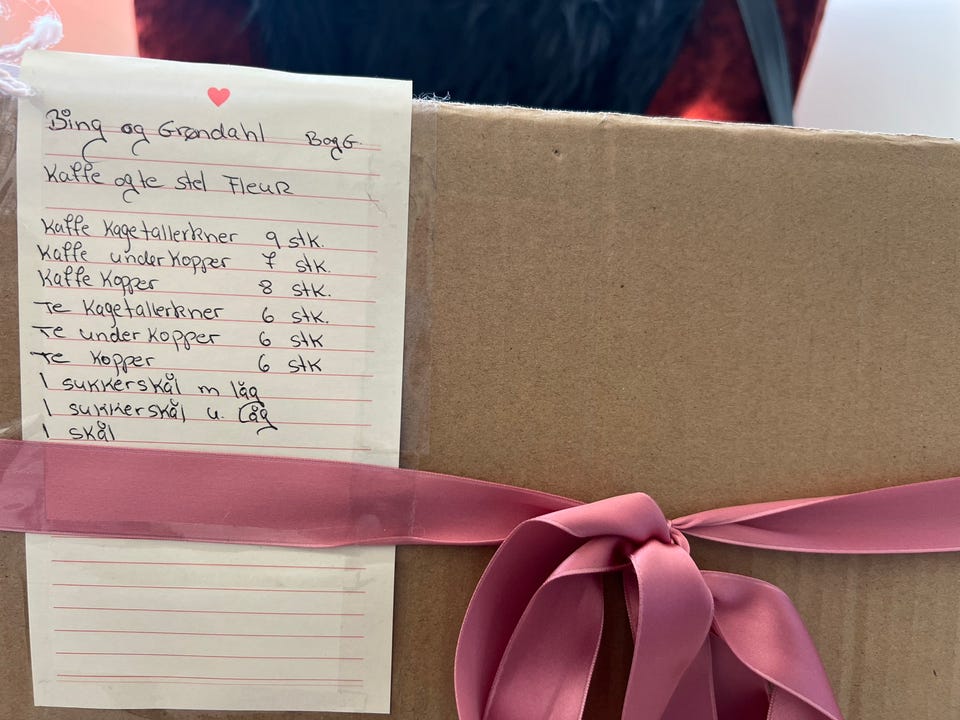 Bing og Grøndahl BogG.
Kaffe og te stel Fleur
Kaffe Kagetallerkner 9 stk.
Kaffe underkopper 7 stk.
Kaffe Kopper 8 stk.
Te Kagetallerkner 6 stk.
Te underkopper 6 stk
Te Kopper 6 stk
1 sukkerskål m låg
1 sukkerskål u. låg
1 skål